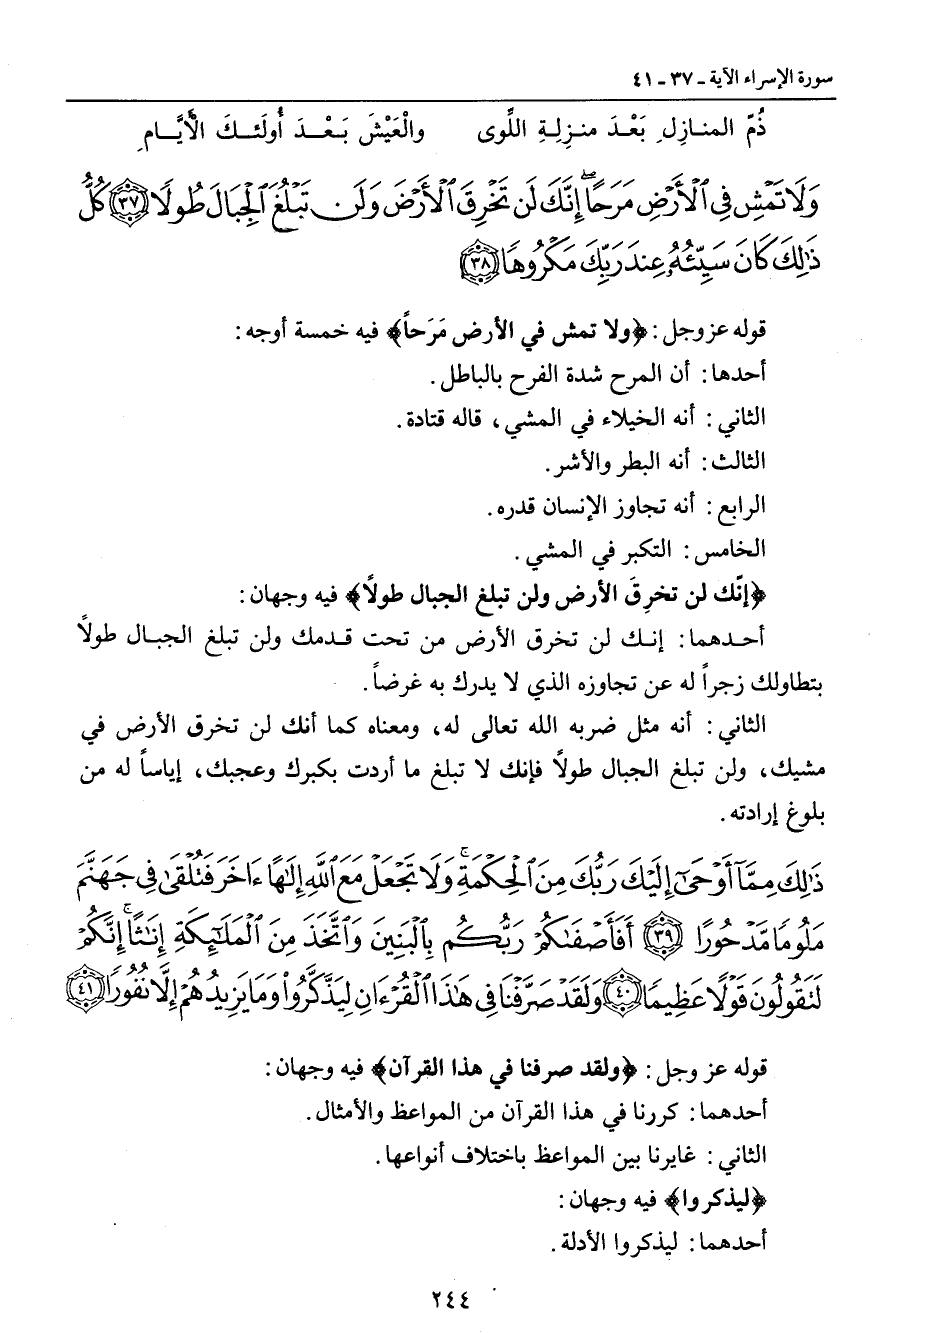 سورة الإسراء الآية - ٣٧ - ٤١
ذُمّ المنازِلِ بَعْدَ منزِلةِ اللَّوى والْعَيْشَ بَعْدَ أولَئكَ الأيَّامِ
وَلَا تَمْشِ فِي ٱلْأَرْضِ مَرَحًا ۖ إِنَّكَ لَن تَخْرِقَ ٱلْأَرْضَ وَلَن تَبْلُغَ ٱلْجِبَالَ طُولًا ٣٧ كُلُّ
ذَٰلِكَ كَانَ سَيِّئُهُۥ عِندَ رَبِّكَ مَكْرُوهًا ٣٨
قوله عز وجل: ﴿ولا تمش في الأرض مَرَحاً﴾ فيه خمسة أوجه:
أحدها: أن المرح شدة الفرح بالباطل.
الثاني: أنه الخيلاء في المشي، قاله قتادة.
الثالث: أنه البطر والأشر.
الرابع: أنه تجاوز الإنسان قدره.
الخامس: التكبر في المشي.
﴿إنّك لن تخرِقَ الأرض ولن تبلغ الجبال طولًا﴾ فيه وجهان:
أحدهما: إنك لن تخرق الأرض من تحت قدمك ولن تبلغ الجبال طولًا
بتطاولك زجراً له عن تجاوزه الذي لا يدرك به غرضاً.
الثاني: أنه مثل ضربه الله تعالى له، ومعناه كما أنك لن تخرق الأرض في
مشيك، ولن تبلغ الجبال طولًا فإنك لا تبلغ ما أردت بكبرك وعجبك، إياساً له من
بلوغ إرادته.
ذَٰلِكَ مِمَّآ أَوْحَىٰٓ إِلَيْكَ رَبُّكَ مِنَ ٱلْحِكْمَةِ ۗ وَلَا تَجْعَلْ مَعَ ٱللَّهِ إِلَٰهًا ءَاخَرَ فَتُلْقَىٰ فِي جَهَنَّمَ
مَلُومًا مَّدْحُورًا ٣٩ أَفَأَصْفَىٰكُمْ رَبُّكُم بِٱلْبَنِينَ وَٱتَّخَذَ مِنَ ٱلْمَلَٰٓئِكَةِ إِنَٰثًا ۚ إِنَّكُمْ
لَتَقُولُونَ قَوْلًا عَظِيمًا ٤٠ وَلَقَدْ صَرَّفْنَا فِي هَٰذَا ٱلْقُرْءَانِ لِيَذَّكَّرُوا۟ وَمَا يَزِيدُهُمْ إِلَّا نُفُورًا ٤١
قوله عز وجل: ﴿ولقد صرفنا في هذا القرآن﴾ فيه وجهان:
أحدهما: كررنا في هذا القرآن من المواعظ والأمثال.
الثاني: غايرنا بين المواعظ باختلاف أنواعها.
﴿ليذكروا﴾ فيه وجهان:
أحدهما: ليذكروا الأدلة.
٢٤٤